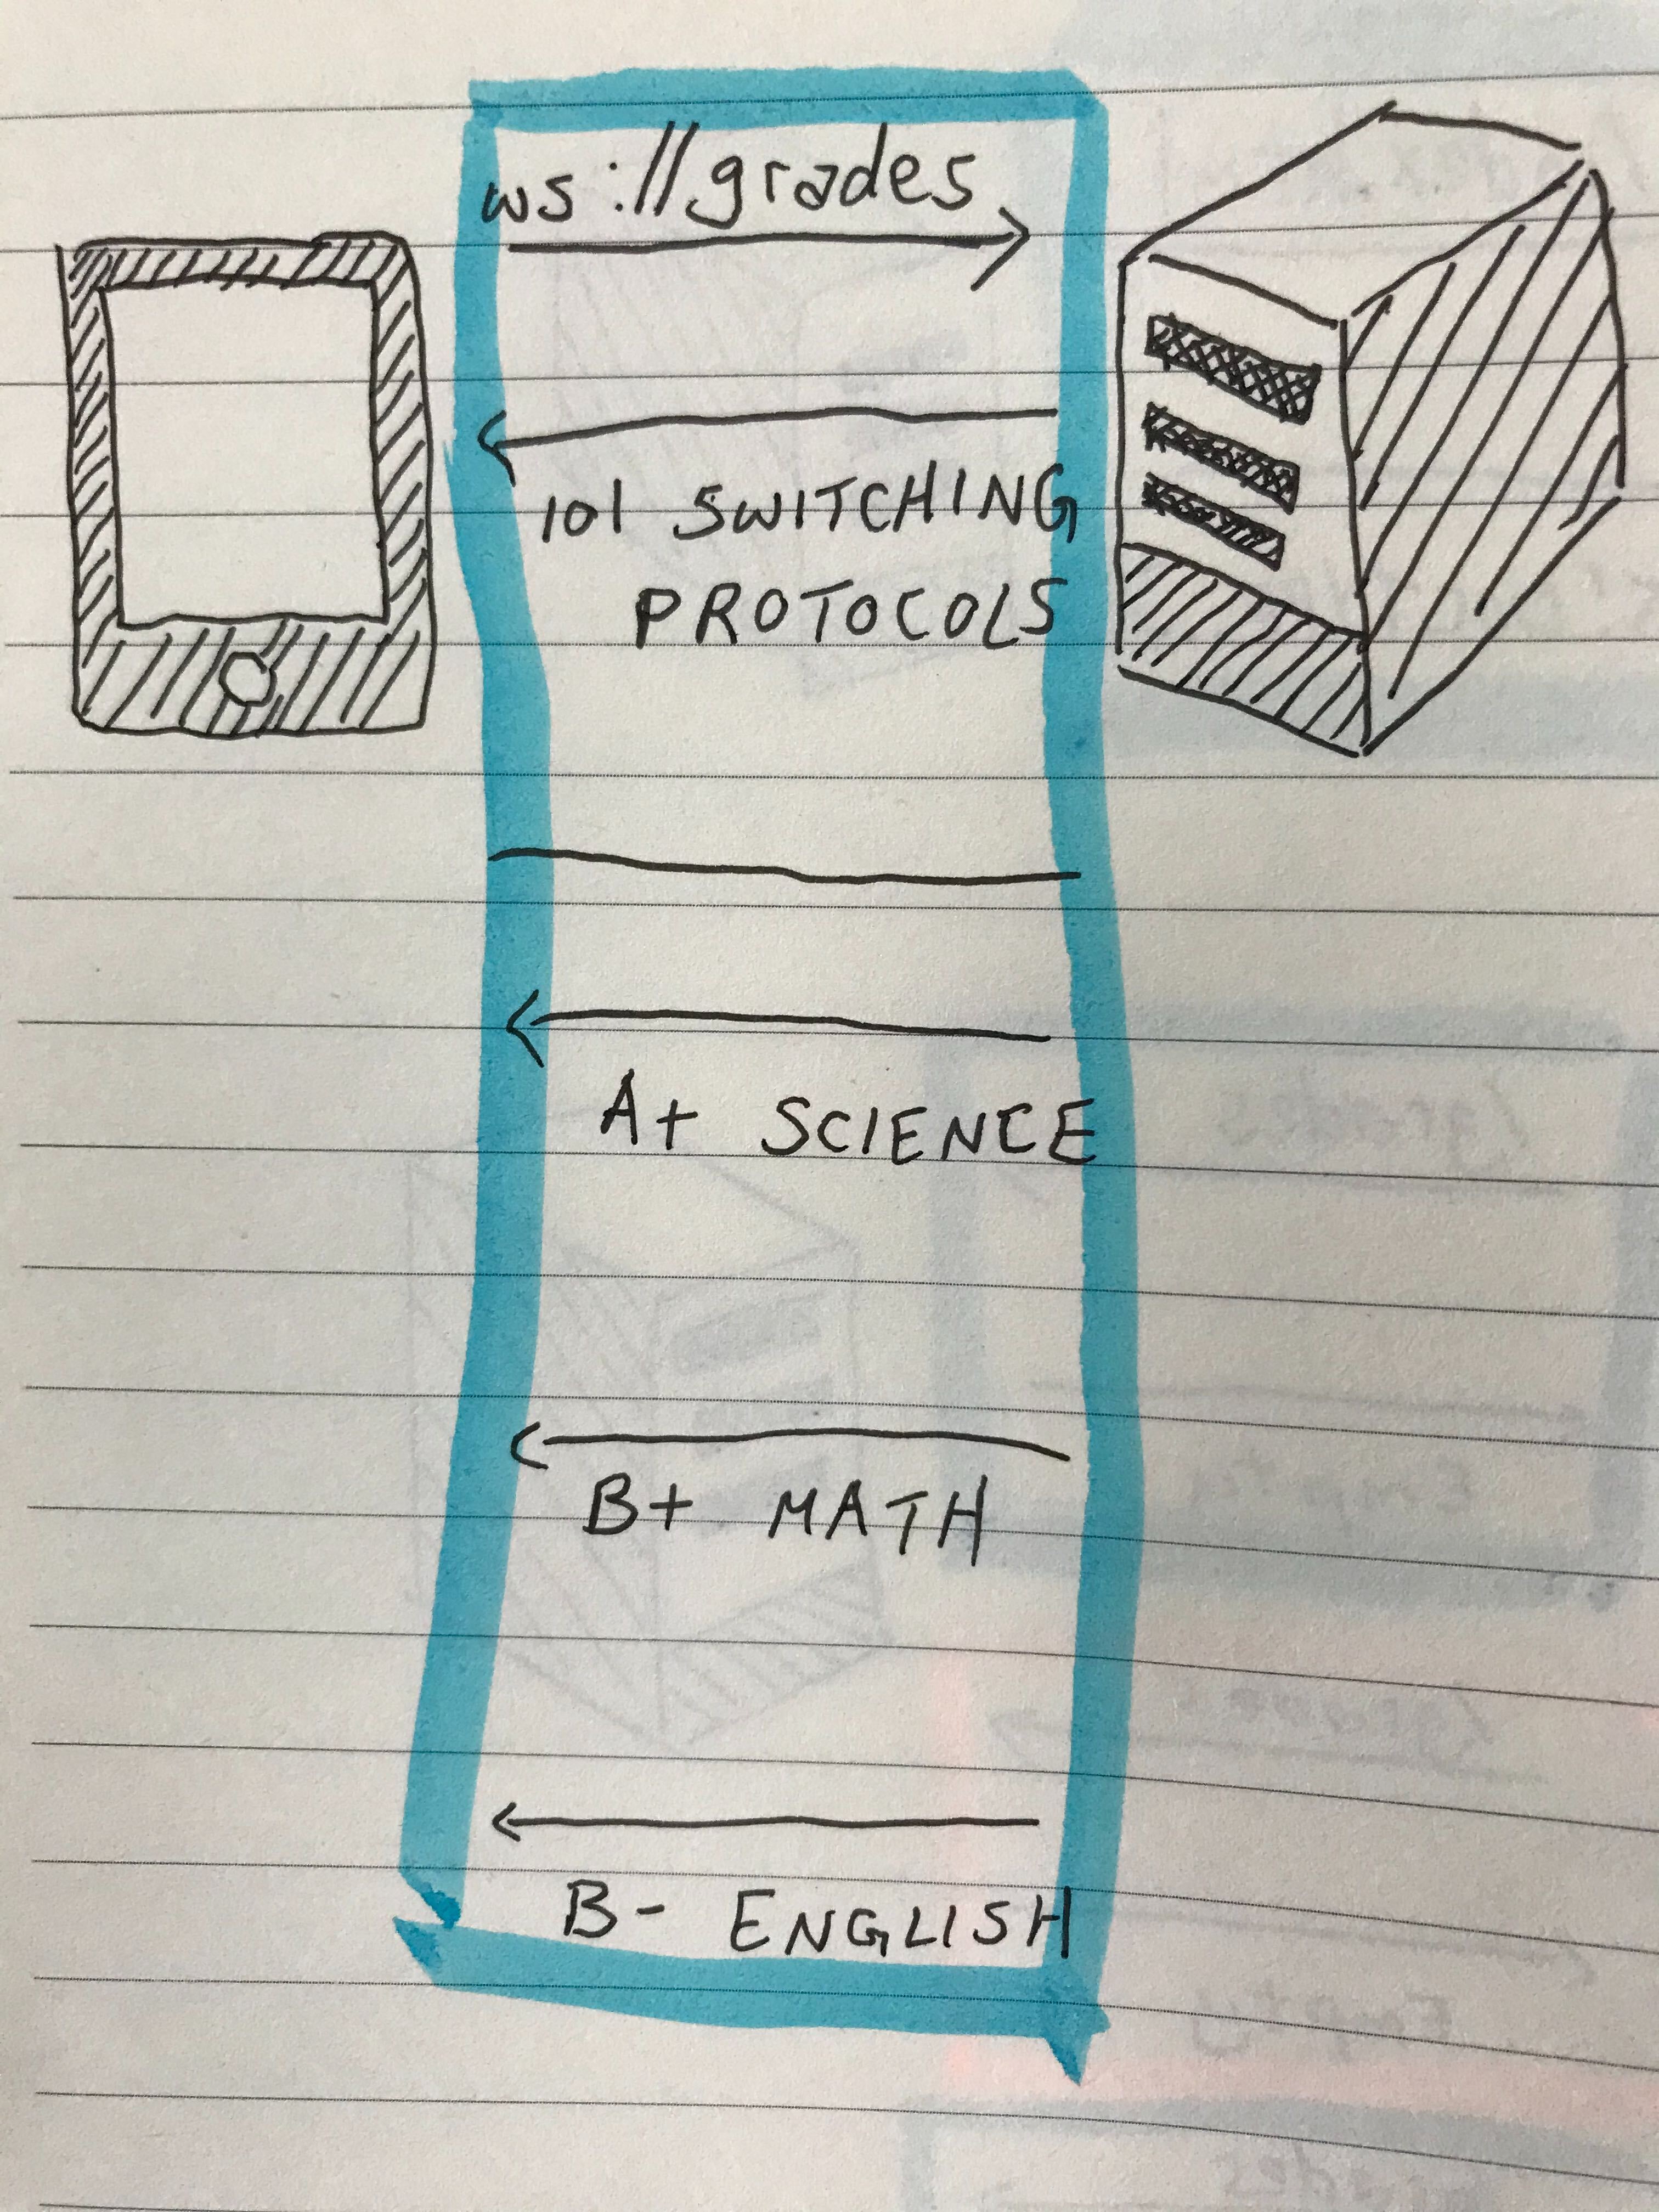 ws://grades
101 SWITCHING
PROTOCOLS
A+ SCIENCE
B+ MATH
B- ENGLISH